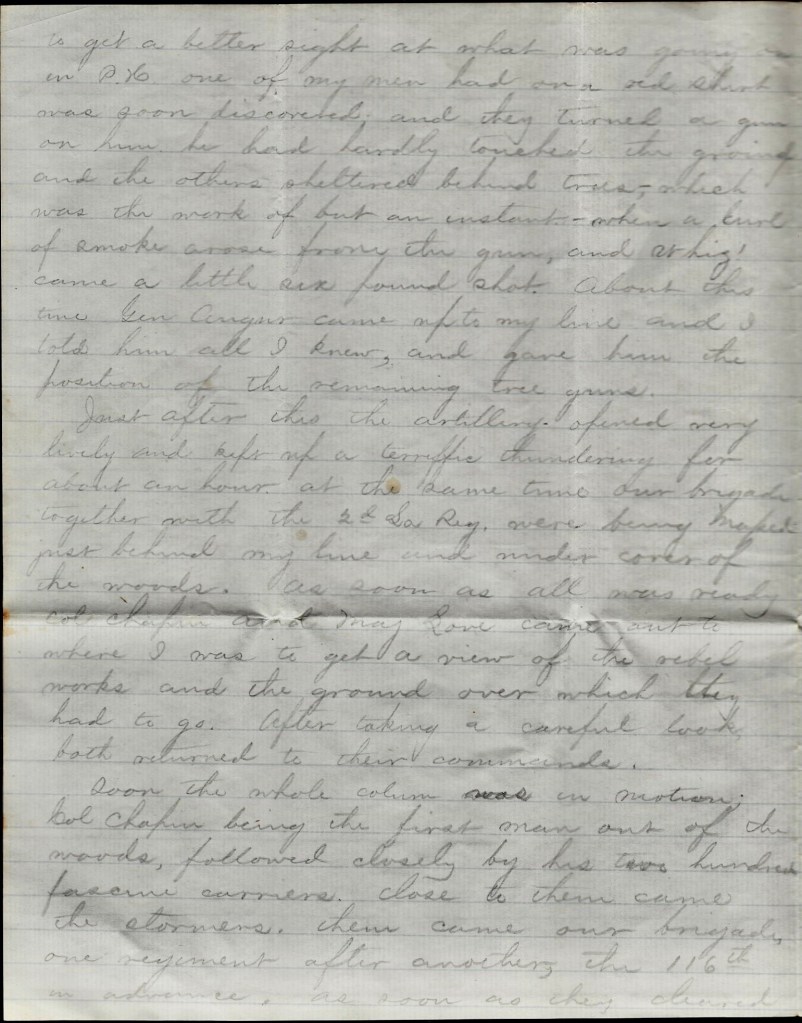 to get a better sight at what was going on
in P.H. one of my men had on a red shirt
was soon discovered; and they turned a gun
on him. he had hardly touched the ground
and the others sheltered behind trees,- which
was the work of but an instant - when a curl
of smoke arose from the gun, and whiz!
came a little six pound shot. About this
time Gen Augur came up to my line and I
told him all I knew, and gave him the
position of the remaining tree guns.
Just after this the artillery opened very
lively and kept up a terriffic thundering for
about an hour. at the same time our brigade
together with the 2d La Reg. were being maped
just behind my line and under cover of
the woods. As soon as all was ready
Col Chapin and Maj Love came out to
where I was to get a view of the rebel
works and the ground over which they
had to go. After taking a careful look,
both returned to their commands.
Soon the whole colum was in motion;
Col Chapin being the first man out of the
woods, followed closely by his two hundred
fascine carriers. Close to them came
the stormers. them came our brigade,
one regiment after another, the 116th
in advance. as soon as they cleared